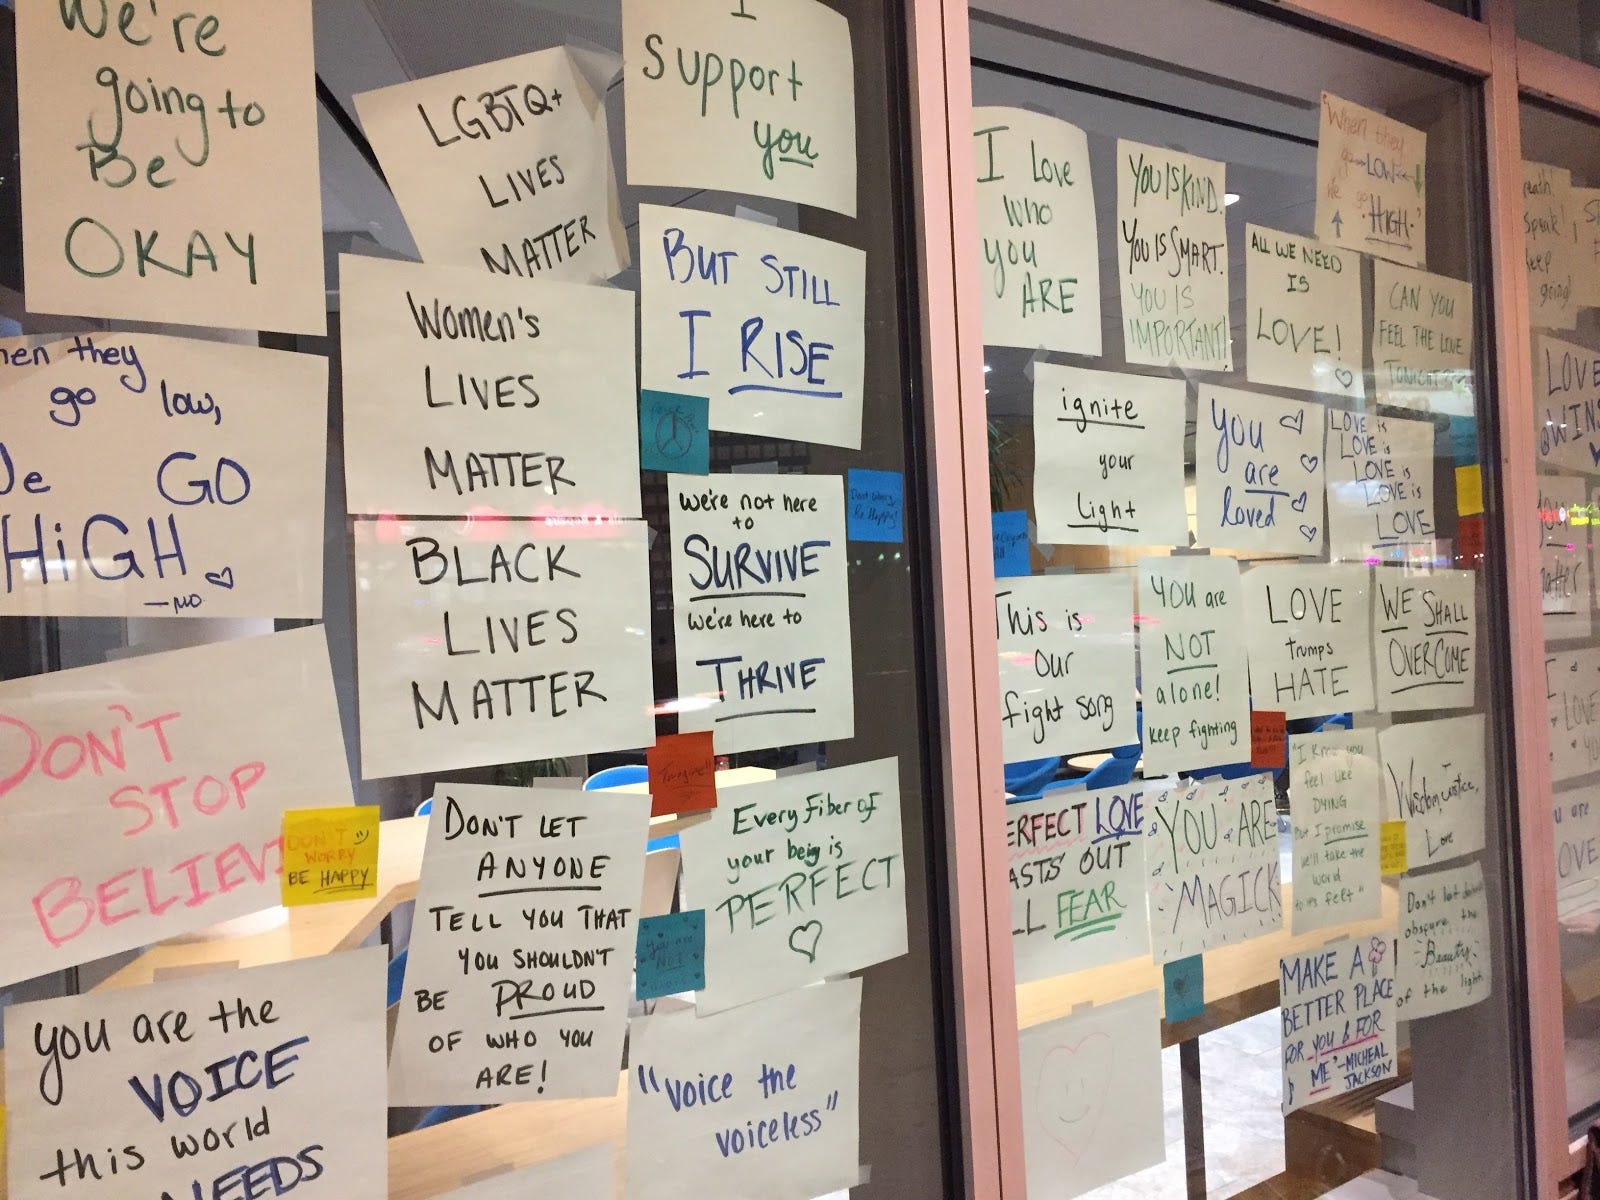 We're
going to
Be
OKAY
LGBTQ+
LIVES
MATTER
I
support
you
BUT STILL
I RISE
Women's
LIVES
MATTER
they
go low,
GO
HiGH
—MO
BLACK
LIVES
MATTER
we're not here
to
SURVIVE
we're here to
THRIVE
Dont worry
Be Happy!
DON'T
STOP
DON'T
WORRY
BE HAPPY
DON'T LET
ANYONE
TELL YOU THAT
YOU SHOULDN'T
BE PROUD
OF WHO YOU
ARE!
Every Fiber of
your being is
PERFECT
you are
NOT
you are the
VOICE
this world
NEEDS
"voice the
voiceless"
I love
who
you
ARE
YOU IS KIND.
YOU IS SMART.
YOU IS
IMPORTANT!
"When they
go LOW
we go
HIGH."
ALL WE NEED
IS
LOVE!
CAN YOU
FEEL THE LOVE
TONIGHT
ignite
your
Light
you
are
loved
LOVE is
LOVE is
LOVE is
LOVE is
LOVE
This is
our
fight song
YOU are
NOT
alone!
keep fighting
LOVE
trumps
HATE
WE SHALL
OVERCOME
LOVE
OUT
FEAR
YOU ARE
MAGICK
"I know you
feel like
DYING
But I promise
we'll take the
world
Wisdom, Justice,
Love
Don't let
obscure the
Beauty
of the light
MAKE A
BETTER PLACE
FOR YOU & FOR
ME"-MICHEAL
JACKSON
Speak!
keep
going!
LOVE
WINS
matter
I
LOVE
are